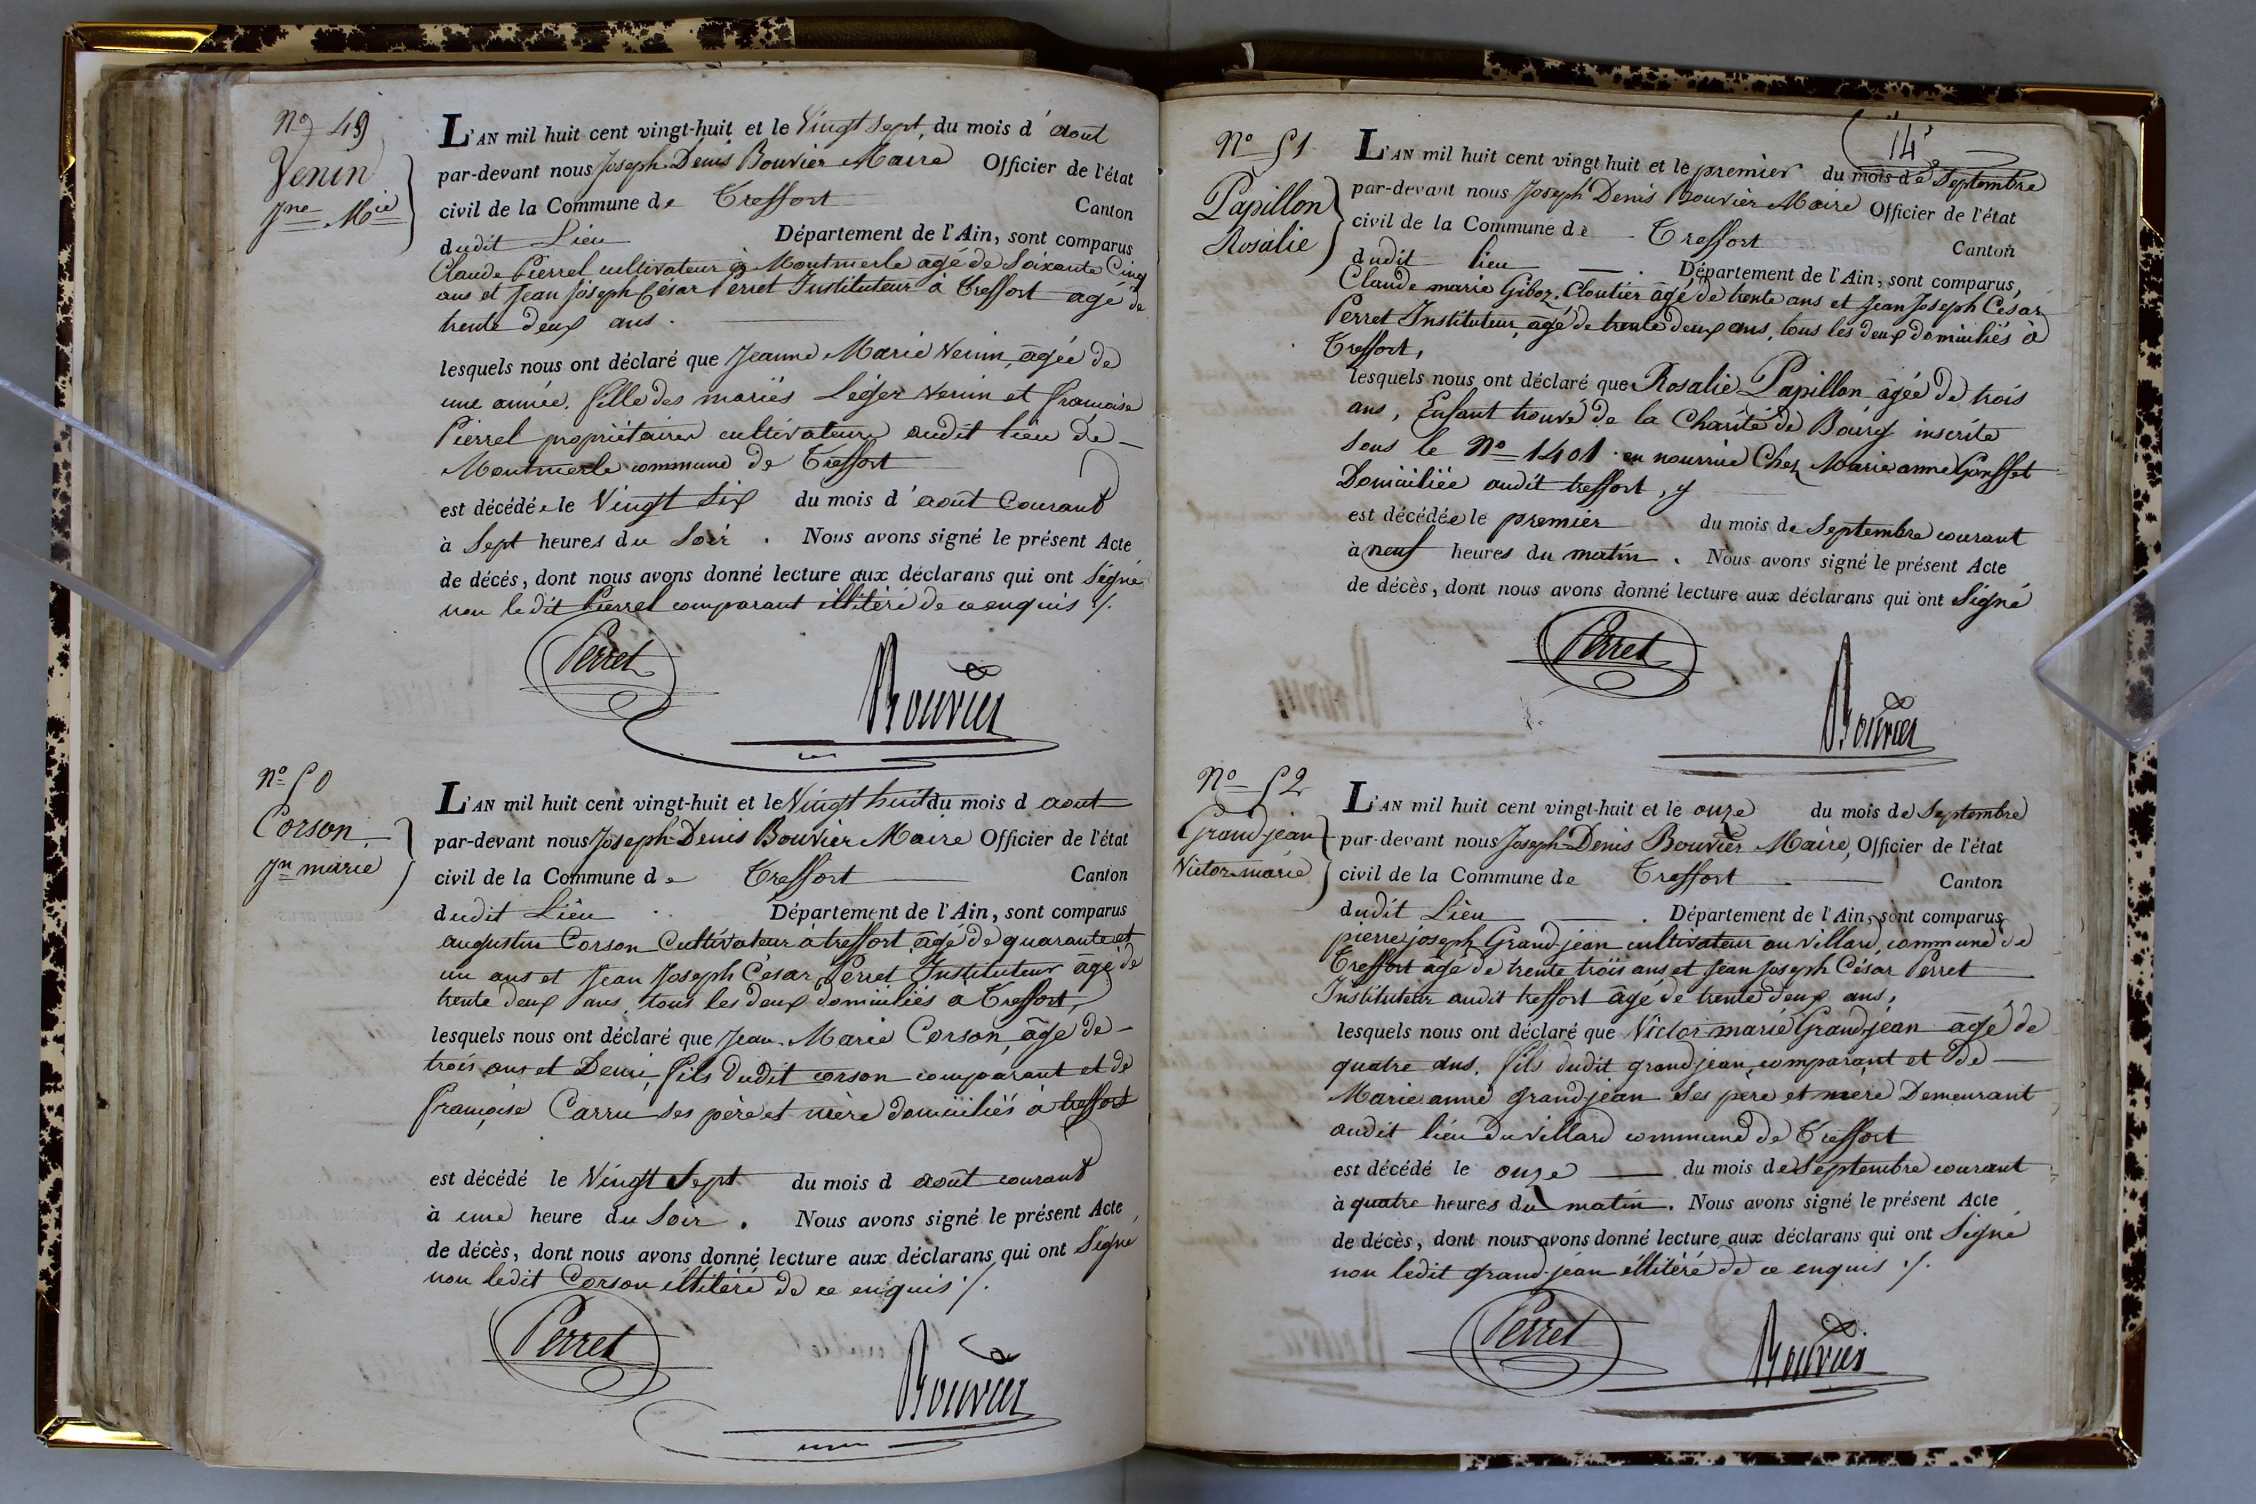 N° 49
Venin
Jne Mie
L'AN mil huit cent vingt-huit et le Vingt sept, du mois d'aout
par-devant nous Joseph Denis Bouvier Maire Officier de l'état
civil de la Commune de Treffort Canton
dudit Lieu Département de l'Ain, sont comparus
Claude Pierrel cultivateur à Montmerle agé de Soixante Cinq
ans et Jean Joseph César Perret Instituteur à Treffort agé de
trente deux ans.
lesquels nous ont déclaré que Jeanne Marie Venin, âgée de
une année, fille des mariés Léger Venin et françoise
Pierrel propriétaires cultivateurs audit lieu de
Montmerle commune de Treffort
est décédée le Vingt Six du mois d'août Courant
à Sept heures du Soir. Nous avons signé le présent Acte
de décés, dont nous avons donné lecture aux déclarans qui ont Signé
non ledit Pierrel comparant illitéré de ce enquis ./.
Perret
Bouvier
N° 50
Corson
Jn marie
L'AN mil huit cent vingt-huit et le Vingt huit du mois d aout
par-devant nous Joseph Denis Bouvier Maire Officier de l'état
civil de la Commune de Treffort Canton
dudit Lieu Département de l'Ain, sont comparus
augustin Corson Cultivateur à treffort âgé de quarante et
un ans et Jean Joseph César Perret Instituteur âgé de
trente deux ans, tous les deux domiciliés à Treffort,
lesquels nous ont déclaré que Jean Marie Corson, âgé de
trois ans et Demi, fils dudit corson comparant et de
françoise Carru ses père et mère domiciliés à treffort
est décédé le Vingt Sept du mois d août courant
à une heure du Soir. Nous avons signé le présent Acte
de décès, dont nous avons donné lecture aux déclarans qui ont Signé
non ledit Corson illitéré de ce enquis ./.
Perret
Bouvier
14
N° 51
Papillon
Rosalie
L'AN mil huit cent vingt-huit et le premier du mois de Septembre
par-devant nous Joseph Denis Bouvier Maire Officier de l'état
civil de la Commune de Treffort Canton
dudit lieu. Département de l'Ain, sont comparus,
Claude marie Giboz, Cloutier âgé de trente ans et Jean Joseph César
Perret Instituteur, âgé de trente deux ans, tous les deux domiciliés à
Treffort,
lesquels nous ont déclaré que Rosalie Papillon âgée de trois
ans, Enfant trouvé de la Charité de Bourg inscrite
sous le N° 1401 en nourrice Chez Marie anne
Domiciliée audit treffort, y
est décédée le premier du mois de Septembre courant
à neuf heures du matin. Nous avons signé le présent Acte
de décès, dont nous avons donné lecture aux déclarans qui ont Signé
Perret
Bouvier
N° 52
Grand-jean
Victor marie
L'AN mil huit cent vingt-huit et le onze du mois de Septembre
par-devant nous Joseph Denis Bouvier Maire, Officier de l'état
civil de la Commune de Treffort Canton
dudit Lieu. Département de l'Ain, sont comparus
pierre joseph Grand-jean cultivateur au villard, commune de
Treffort âgé de trente trois ans et Jean Joseph César Perret
Instituteur audit treffort âgé de trente deux ans,
lesquels nous ont déclaré que Victor marie Grand-jean âgé de
quatre ans, fils dudit grand jean comparant et de
Marie anne grand-jean Ses père et mere Demeurant
audit lieu du villard commune de Treffort
est décédé le onze du mois de Septembre courant
à quatre heures du matin. Nous avons signé le présent Acte
de décès, dont nous avons donné lecture aux déclarans qui ont Signé
non ledit grand-jean illitéré de ce enquis ./.
Perret
Bouvier